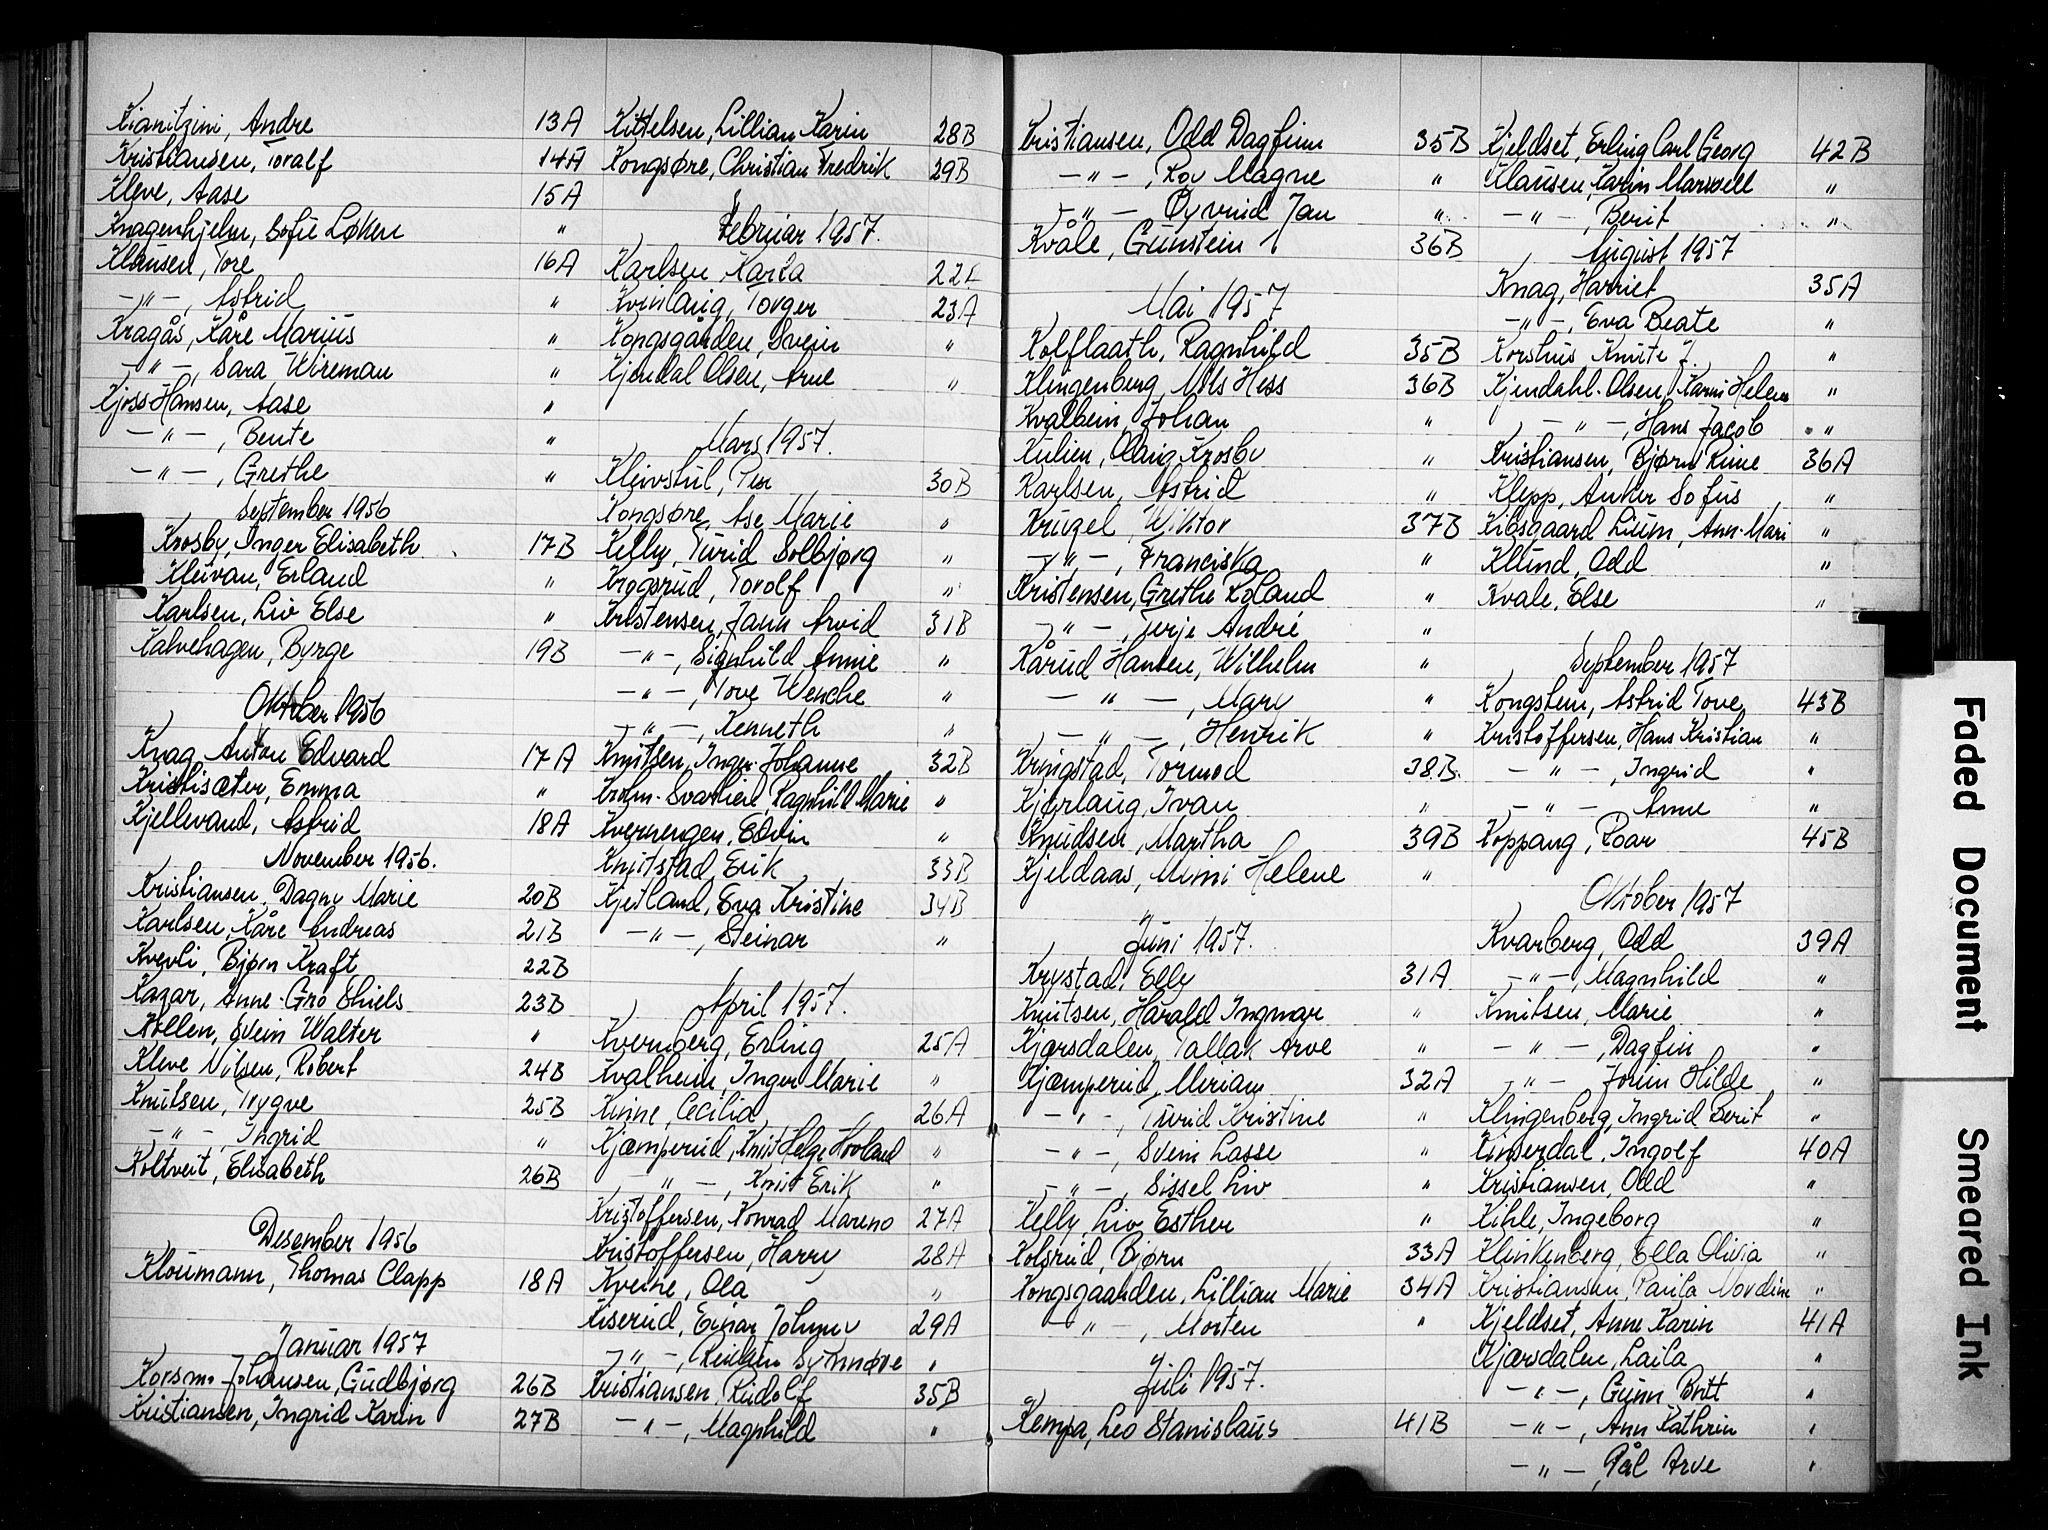 Kianitzini, Andre 13A
Kristiansen, Toralf 14A
Kleve, Aase 15A
Knagenhjelm, Sofie Løken "
Klausen, Tore 16A
-"-, Astrid "
Kragås, Kåre Marius "
-"-, Sara Wireman "
Kjoss Hansen, Aase "
-"-, Bente "
-"-, Grethe "
September 1956
Krosby, Inger Elisabeth 17B
Kleivan, Erland "
Karlsen, Liv Else "
Kalvehagen, Byrge 19B
Oktober 1956
Knag, Anton Edvard 17A
Kristisæter, Emma "
Kjellevand, Astrid 18A
November 1956.
Kristiansen, Dagny Marie 20B
Karlsen, Kåre Andreas 21B
Kvevli, Bjørn Kraft 22B
Kazar, Anne-Gro Shiels 23B
Kollen, Svein Walter "
Kleve Nilsen, Robert 24B
Knutsen, Trygve 25B
-"-, Ingrid "
Koltveit, Elisabeth 26B
Desember 1956
Kloumann, Thomas Clapp 18A
Januar 1957
Korsmo-Johansen, Gudbjørg 26B
Kristiansen, Ingrid Karin 27B
Kittelsen, Lillian Karin 28B
Kongsøre, Christian Fredrik 29B
Februar 1957.
Karlsen, Karla 22A
Kvinlaug, Torger 23A
Kongsgården, Svein "
Kjendal Olsen, Arne "
Mars 1957.
Kleivstul, Per 30B
Kongsøre, Åse Marie "
Kelly, Turid Solbjørg "
Krogsrud, Torolf "
Kristensen, Jann Arvid 31B
-"-, Signhild Annie "
-"-, Tove Wenche "
-"-, Kenneth "
Knutsen, Inger Johanne 32B
Krohn-Svaleien, Ragnhild Marie "
Kvernengen, Edvin "
Knutstad, Erik 33B
Kjetland, Eva Kristine 34B
-"-, Steinar "
April 1957.
Kvernberg, Erling 25A
Kvalheim, Inger Marie "
Kinne, Cecilia 26A
Kjæmperud, Knut Helge Hovland "
-"-, Knut Erik "
Kristoffersen, Konrad Mareno 27A
Kristoffersen, Harry 28A
Kverne, Ola "
Kiserud, Einar Johnny 29A
-"-, Synnøve "
Kristiansen, Rudolf 35B
-"-, Magnhild "
Kristiansen, Odd Dagfinn 35B
-"-, Roy Magne "
-"- Øyvind Jan "
Kvåle, Gunstein 36B
Mai 1957
Kolflaath, Ragnhild 35B
Klingenberg, Nils Hess 36B
Kvalbein, Johan "
Kulien, Olaug Krosby "
Karlsen, Astrid "
Krugel, Wiktor 37B
-"-, Franciska "
Kristensen, Grethe Roland "
-"-, Terje André "
Kårud Hansen, Wilhelm "
-"-, Mary "
-"-, Henrik "
Kringstad, Tormod 38B.
Kjørlaug, Ivan "
Knudsen, Martha 39B
Kjeldaas, Mimi Helene "
Juni 1957.
Krystad, Elly 31A
Knutsen, Harald Ingmar "
Kjærsdalen, Tallak Arve "
Kjæmperud, Miriam 32A
-"-, Turid Kristine "
-"-, Svein Lasse "
-"-, Sissel Liv "
Kelly, Liv Esther "
Kolsrud, Bjørn 33A
Kongsgaarden, Lillian Marie 34A
-"-, Morten "
Juli 1957.
Kempa, Leo Stanislaus 41B
Kjeldset, Erling Carl Georg 42B
Klausen, Karin Marwell "
-"-, Berit "
August 1957
Knag, Harriet 35A
-"-, Eva Beate "
Korshus Knute J. "
Kjendahl-Olsen, Karin Helene "
-"-, Hans Jacob "
Kristiansen, Bjørn Rune 36A
Klepp, Anker Sofus "
Kibsgaard Lium, Ann-Mari "
Klund, Odd "
Kvale, Else "
September 1957
Kongstein, Astrid Tove 43B
Kristoffersen, Hans Kristian "
-"-, Ingrid "
-"- Anne "
Koppang, Roar 45B
Oktober 1957
Kvarberg, Odd 39A
-"-, Magnhild "
Knutsen, Marie "
-"-, Dagfin "
-"- Jorun Hilde "
Klingenberg, Ingrid Berit "
Kinserdal, Ingolf 40A
Kristiansen, Odd "
Kihle, Ingeborg "
Klinkenberg, Ella Olivia "
Kristiansen, Paula Nordine "
Kjeldset, Anne Karin 41A
Kjærsdalen, Laila "
-"-, Gunn Britt "
-"-, Ann Kathrin "
-"-, Pål Arve "
Faded Document Smeared Ink